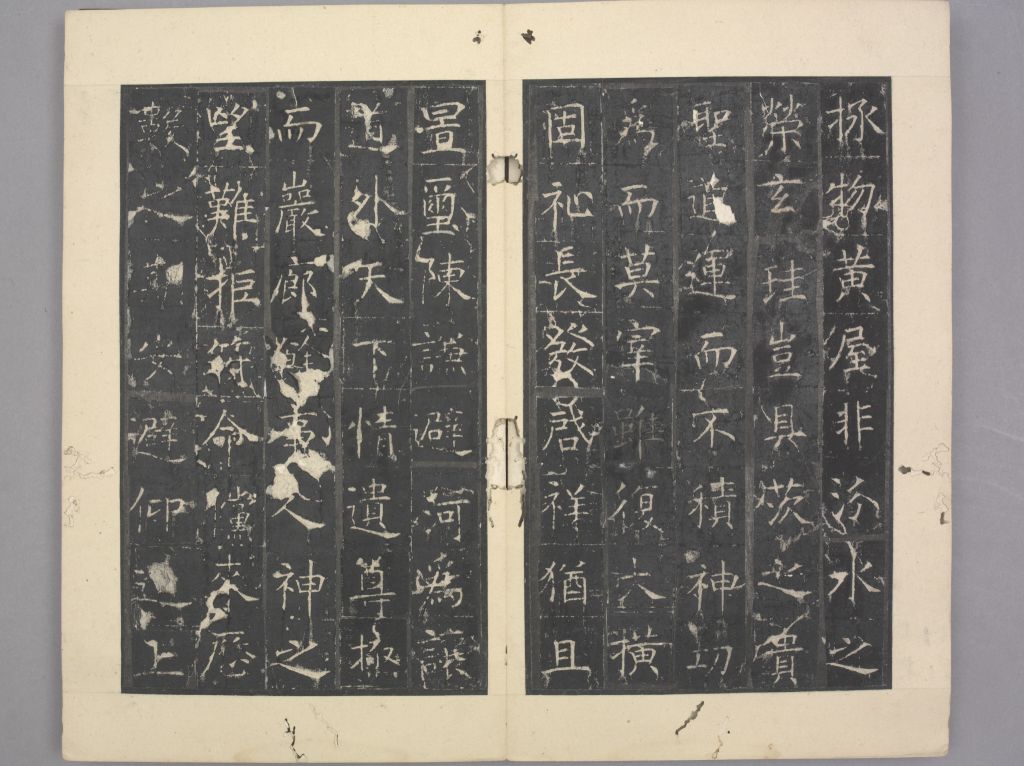 拯物黃屋非汾水之
榮玄珪豈具茨之貴
聖道運而不積神功
爲而莫宰雖復大橫
固祉長發啓祥猶且
置璽陳謙避河爲讓
道外天下情遺尊極
而巖廊雖高人神之
望難拒符命儻來歷
數之安避仰上